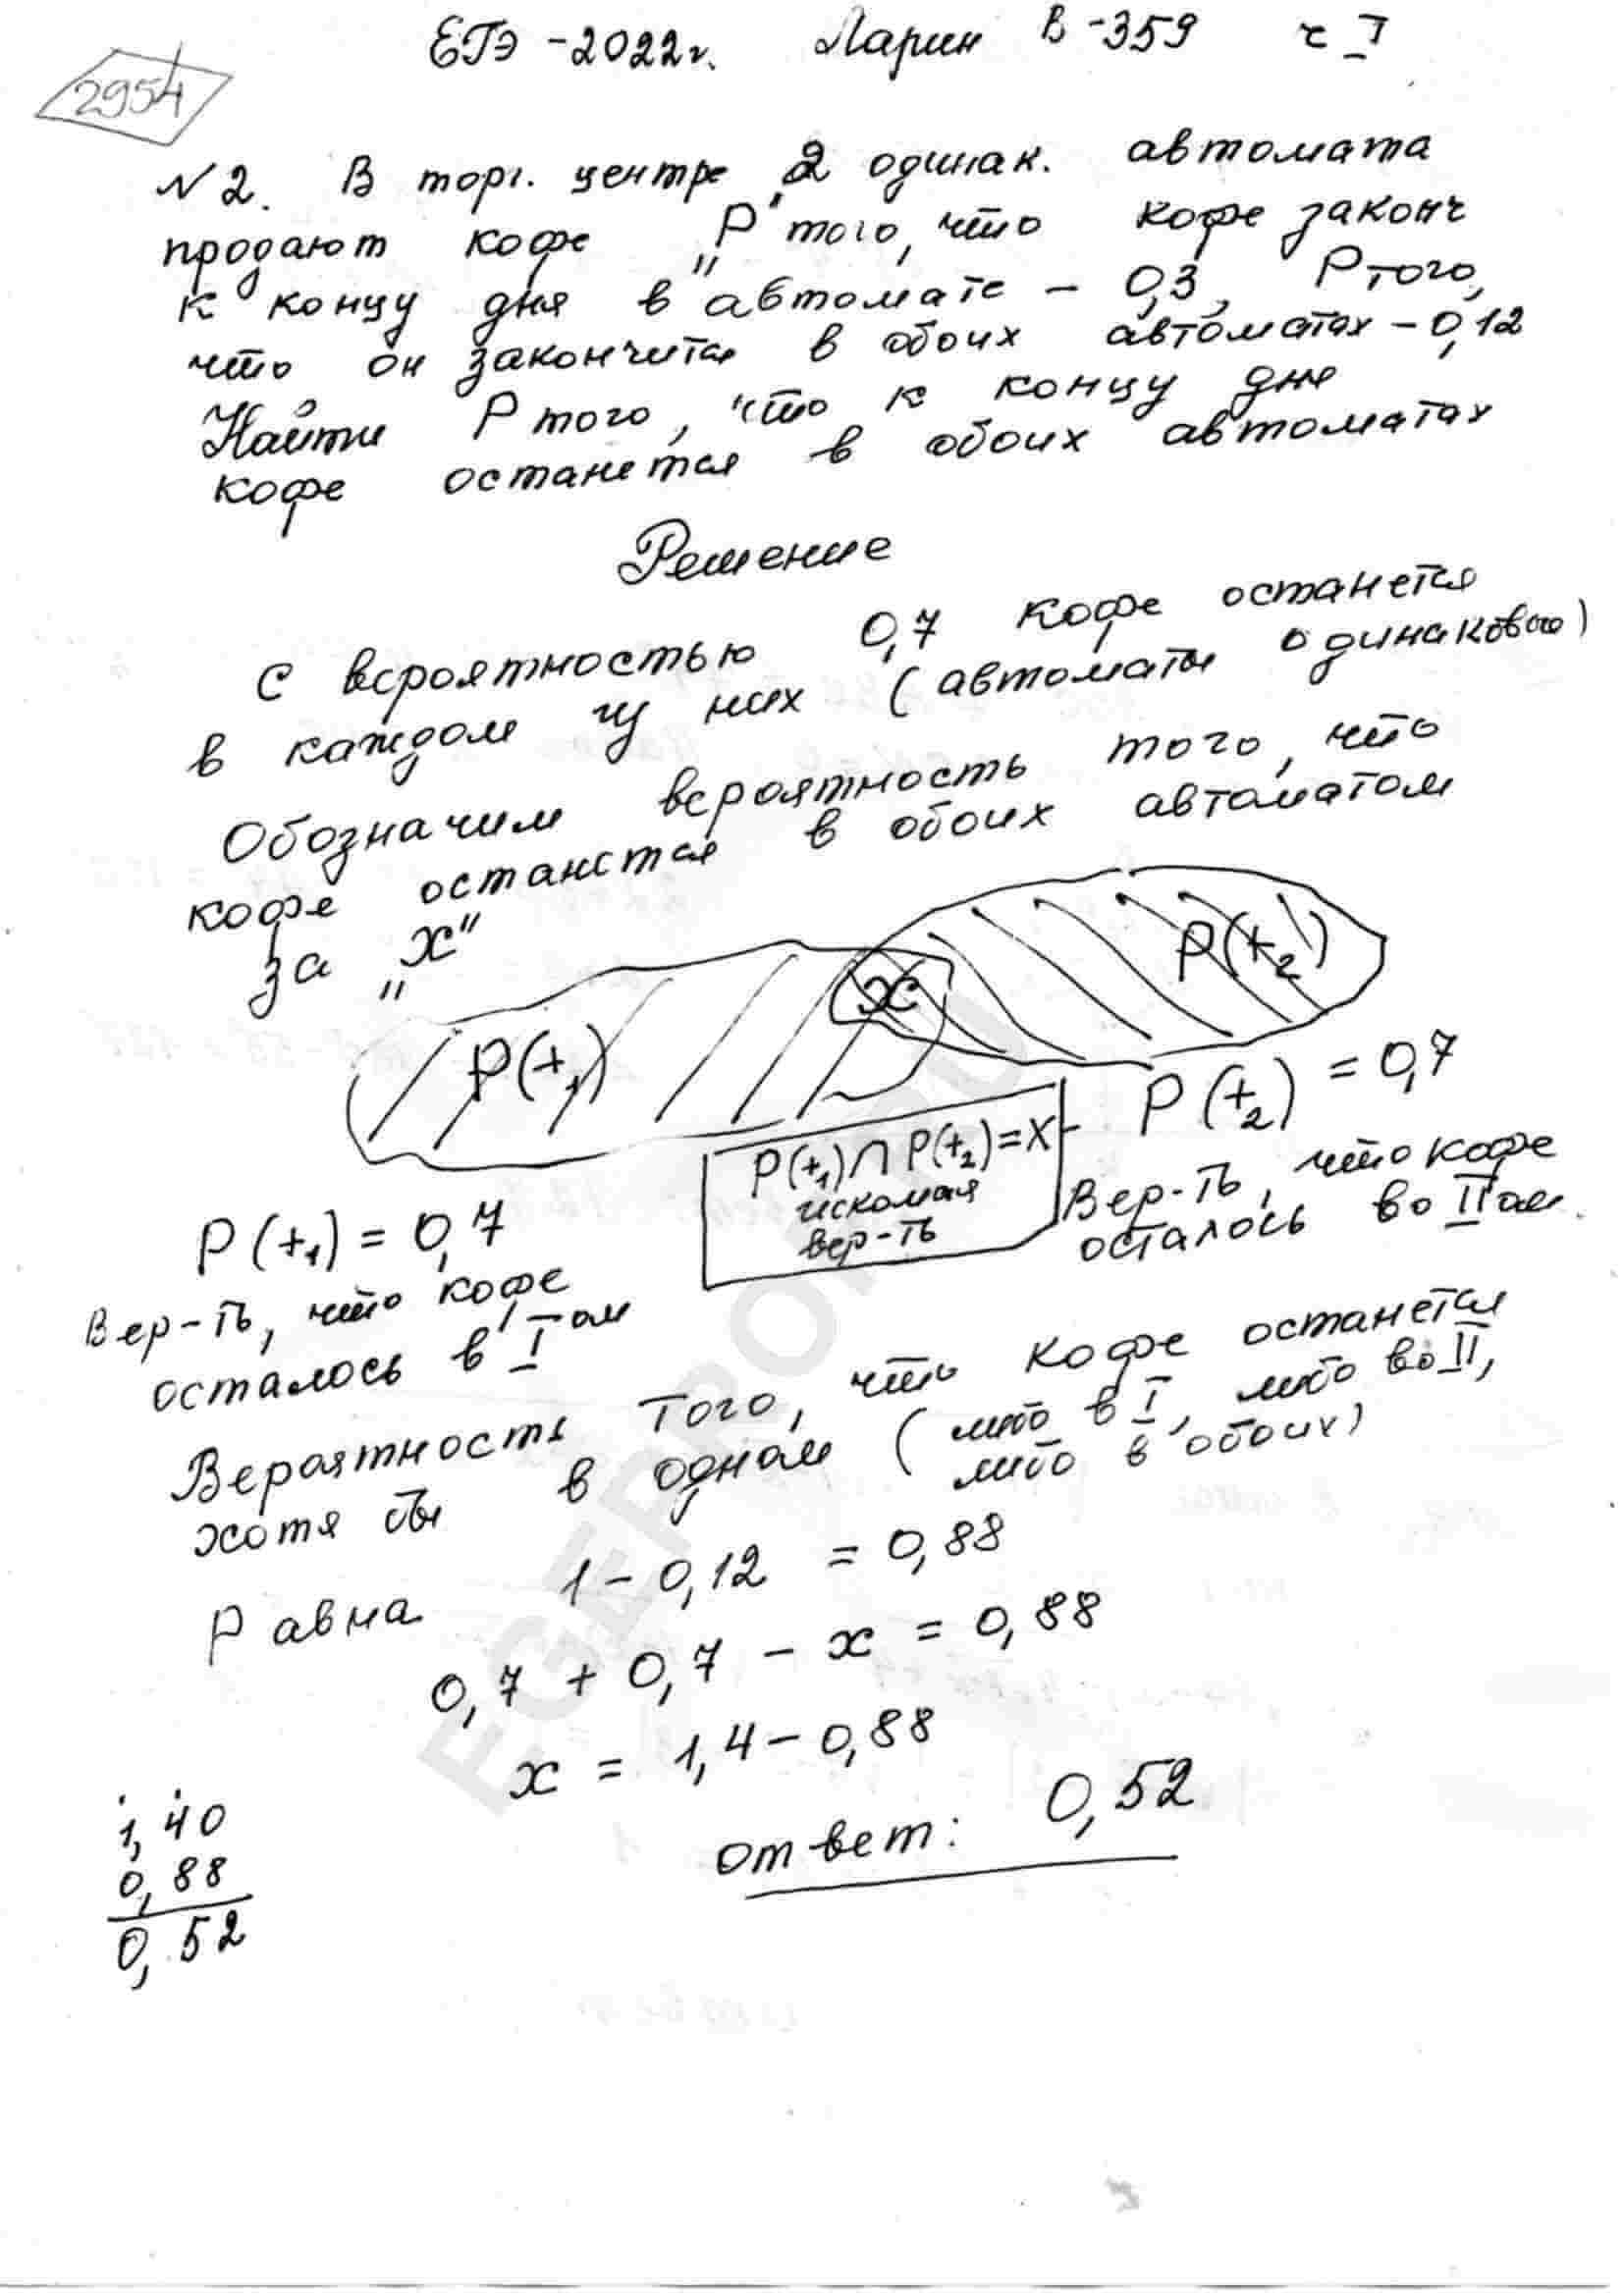 ЕГЭ-2022г. Ларин В-359 ч I
2954
№2. В торг. центре 2 одинак. автомата
продают кофе „Р" того, что кофе законч
к концу дня в автомате - 0,3, Р того,
что он закончится в обоих автоматах - 0,12
Найти Р того, что к концу дня
кофе останется в обоих автоматах
Решение
С вероятностью 0,7 кофе останется
в каждом из них (автоматы одинаковые)
Обозначим вероятность того, что
кофе останется в обоих автоматом
за „х"
P(+₁)
х
P(+₂)
P(+₁) ∩ P(+₂) = X
искомая
вер-ть
P(+₂) = 0,7
Вер-ть, что кофе
осталось во II ом.
P(+₁) = 0,7
Вер-ть, что кофе
осталось в I ом
Вероятность того, что кофе останется
хотя бы в одном (либо в I, либо во II,
либо в обоих)
Равна 1 - 0,12 = 0,88
0,7 + 0,7 - х = 0,88
х = 1,4 - 0,88
1,40
0,88
0,52
ответ: 0,52
EGEPROF.RU